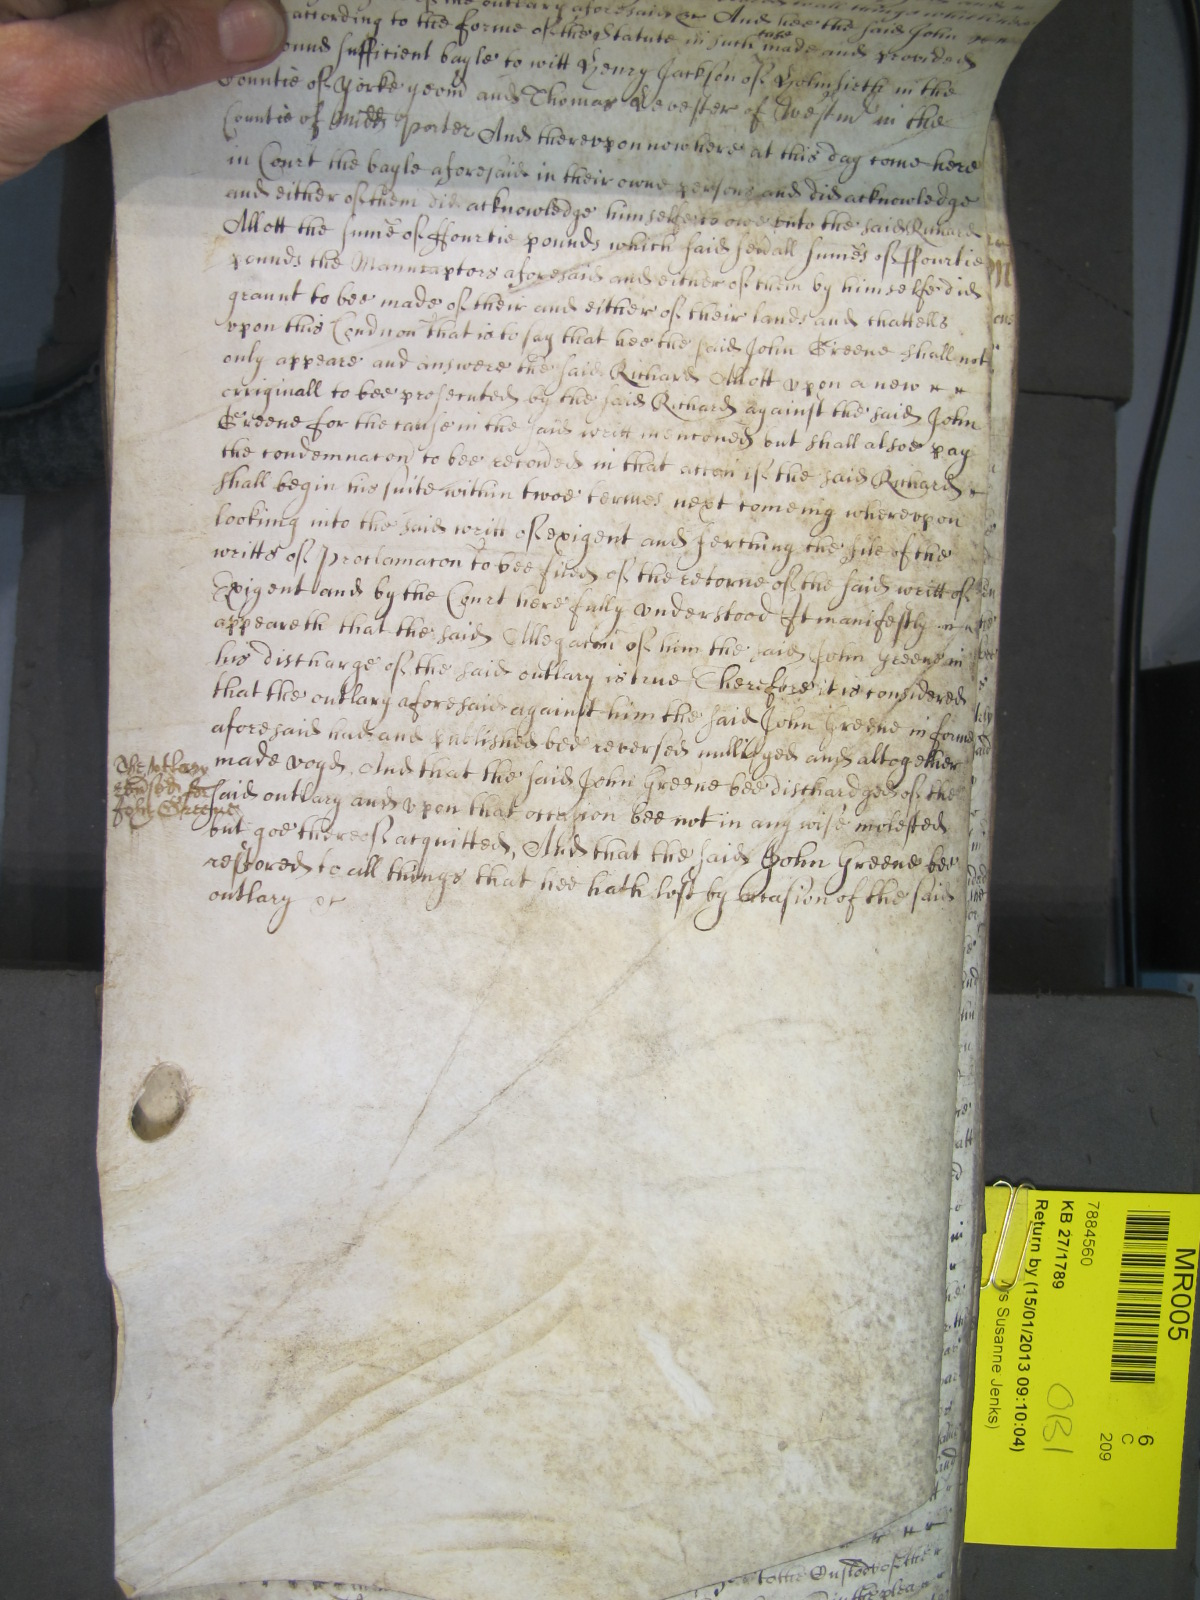 of the outlary aforesaid &c And hee the said John
according to the forme of the Statute in such case made and provided
found sufficient bayle to witt Henry Jackson of Holmfirth in the
Countie of Yorke yeom and Thomas Levester of Westm in the
Countie of Midd Porter And therevpon now here at this day come here
in Court the bayle aforesaid in their owne persons and did acknowledge
and either of them did acknowledge himselfe to owe vnto the said Richard
Allott the sume of ffourtie pounds which said sevall sumes of ffourtie
pounds the Manucaptors aforesaid and either of them by himselfe did
graunt to bee made of their and either of their lands and chattells
vpon this Condicon That is to say that hee the said John Greene shall not
only appeare and answere the said Richard Allott vpon a new
originall to bee prosecuted by the said Richard against the said John
Greene for the cause in the said writt menconed but shall alsoe pay
the condemnacon to bee recorded in that accon if the said Richard
shall begin his suite within twoe termes next comeing wherevpon
looking into the said writt of exigent and serching the file of the
writts of Proclamacon to bee filed of the retorne of the said writt of
Exigent and by the Court here fully vnderstood It manifestly
appeareth that the said Allegacon of him the said John Greene in
his discharge of the said outlary is true Therefore it is considered
that the outlary aforesaid against him the said John Greene in forme
aforesaid had and published bee reversed nullifyed and altogether
made voyd. And that the said John Greene bee dischardged of the
The outlary
reversed for
John Greene
said outlary and vpon that occasion bee not in any wise molested
but goe thereof acquitted, And that the said John Greene bee
restored to all things that hee hath lost by occasion of the said
outlary &c
to the Custodie of the
in the plea
MR005
6
C
209
7884560
KB 27/1789
Return by (15/01/2013 09:10:04)
Susanne Jenks)
OB1